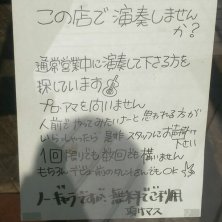 この店で演奏しません
か?
通常営業中に演奏して下さる方を
探しています
プロアマを問いません
人前でやってみたいなーと思われる方が
いらっしゃったら 是非 スタッフにお声掛け
下さい
1回限りでも数回でも構いません
もちろん
でもOK
ノーギャラですが、無料でご利用
頂けマス